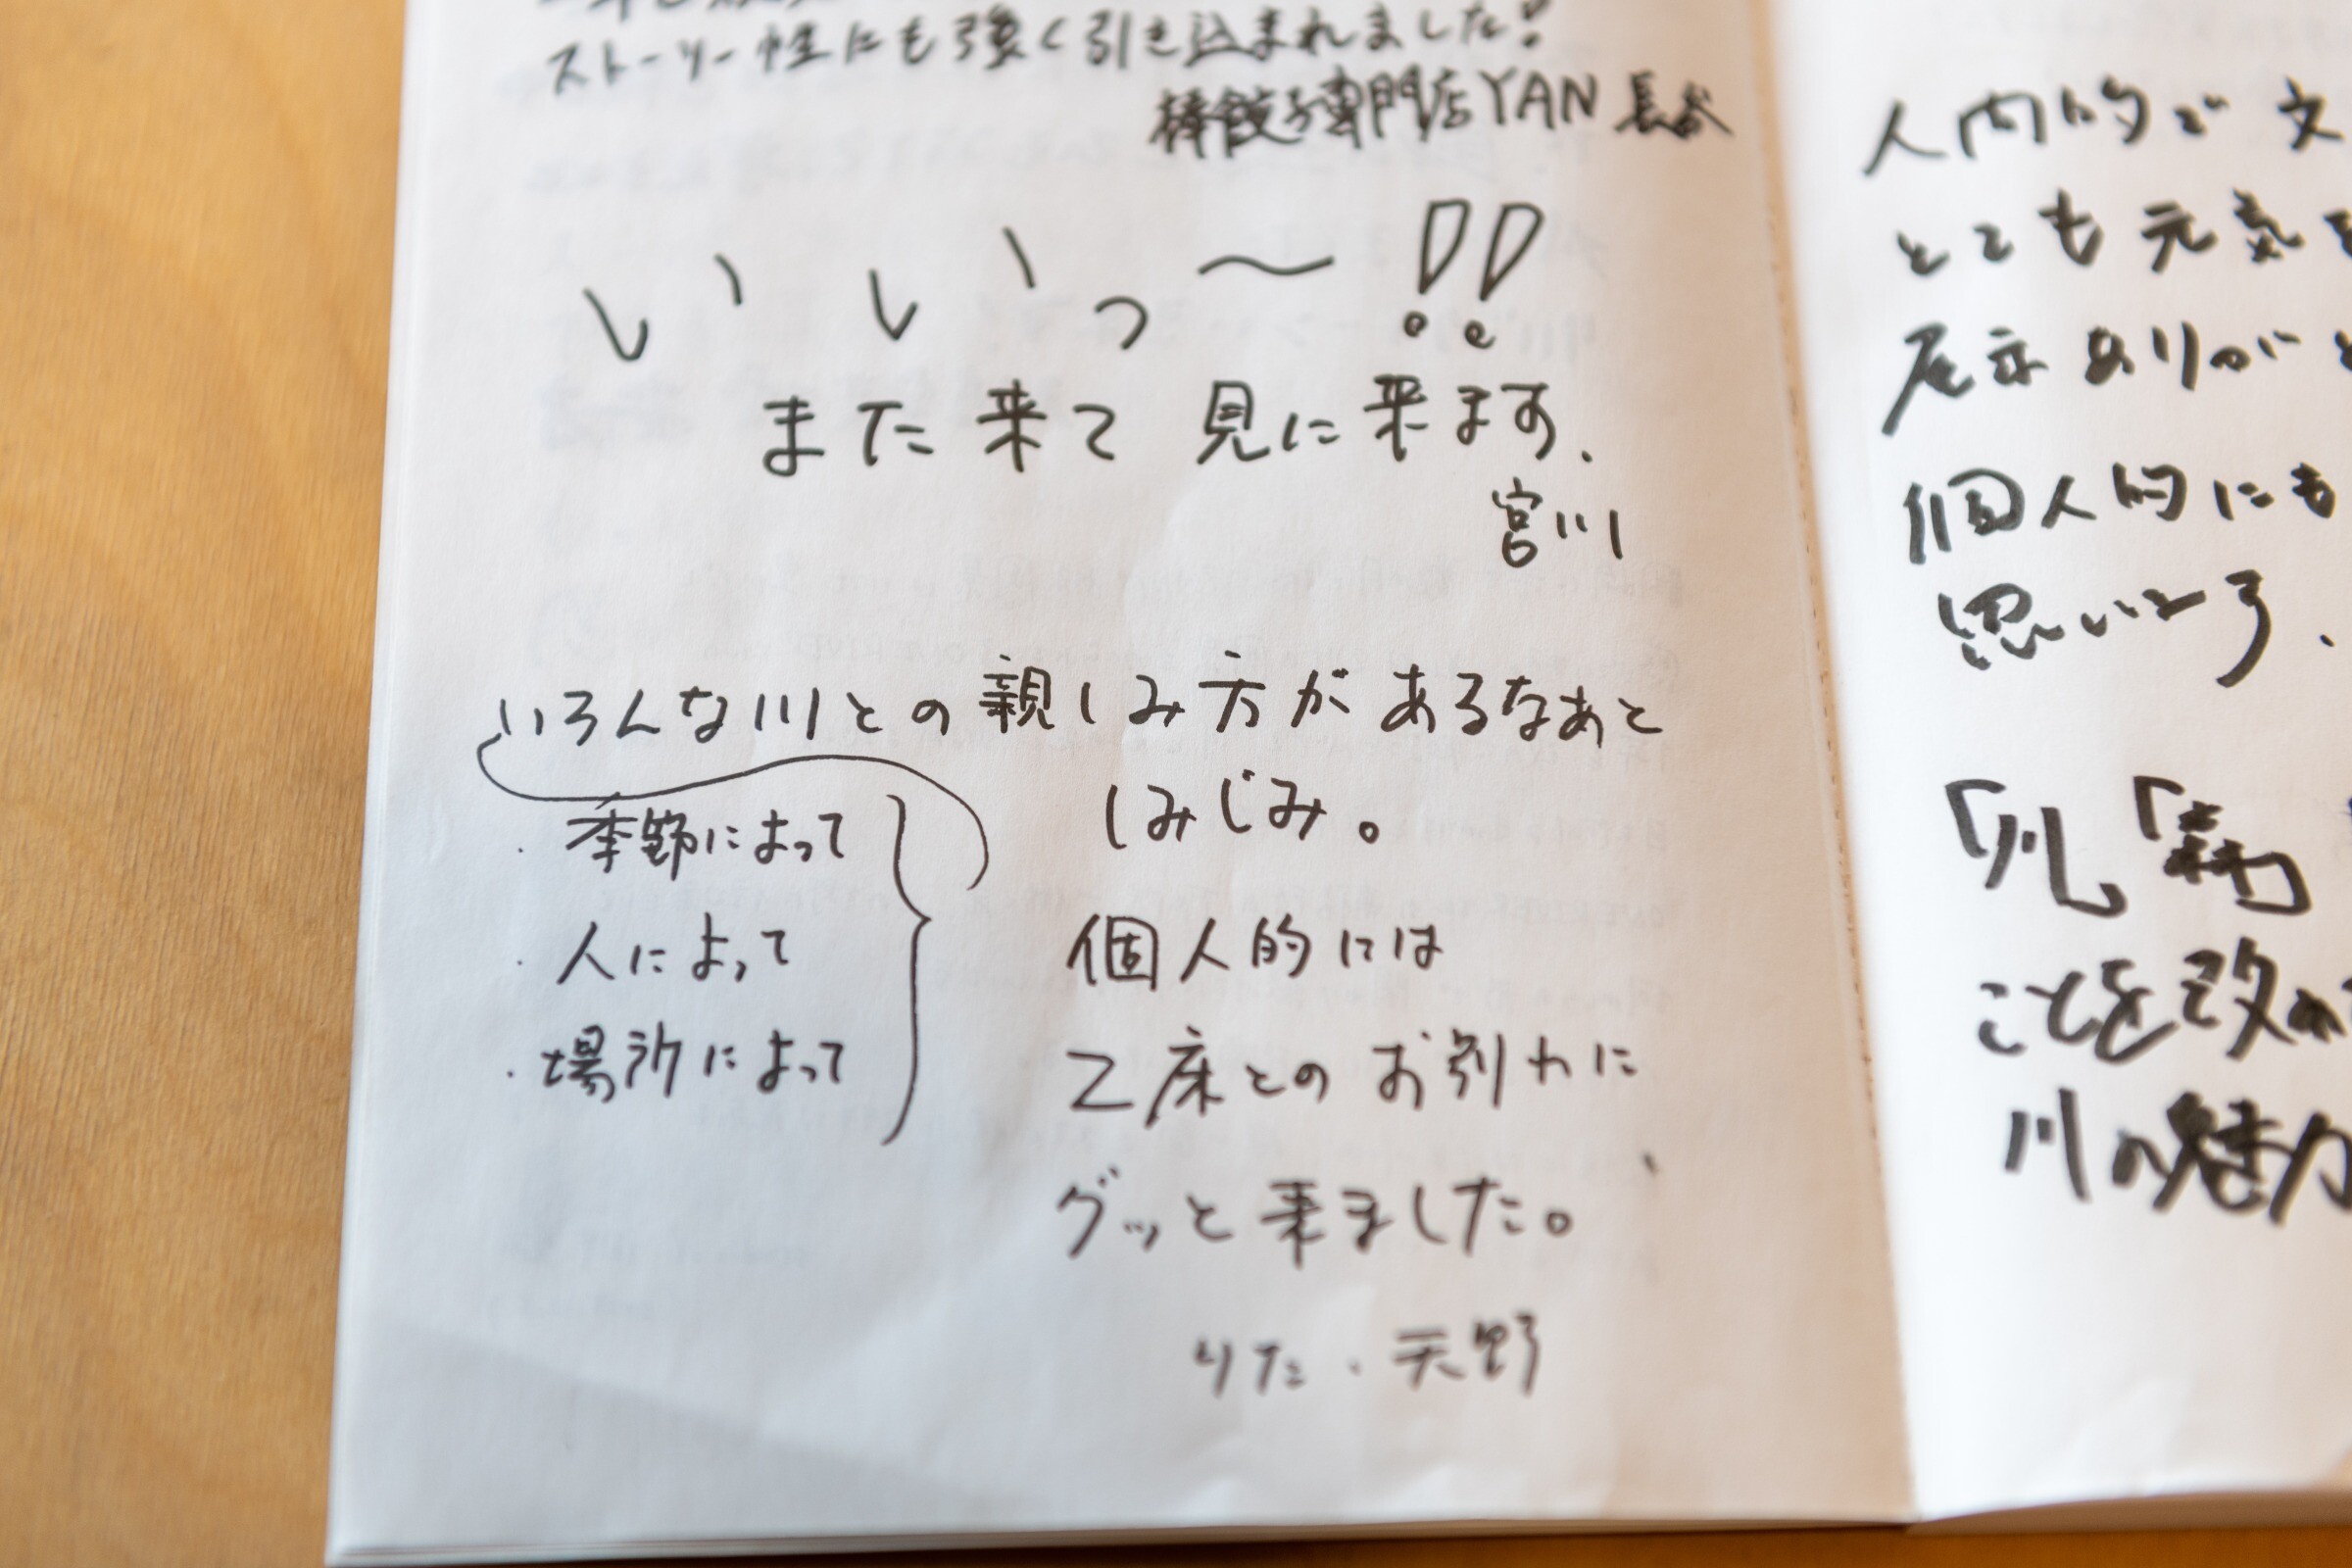 ストーリー性にも強く引き込まれました!
棒餃子専門店YAN 長谷
いいっ〜!!
また来て見に来ます.
宮川
いろんな川との親しみ方があるなあと
しみじみ。
・季節によって
・人によって
・場所によって
個人的には
乙床とのお別れに
グッと来ました。
りた・天野
人間的で文
とても元気を
展示ありがと
個人的にも
思います.
「川」「森
ことを改め
川の魅力